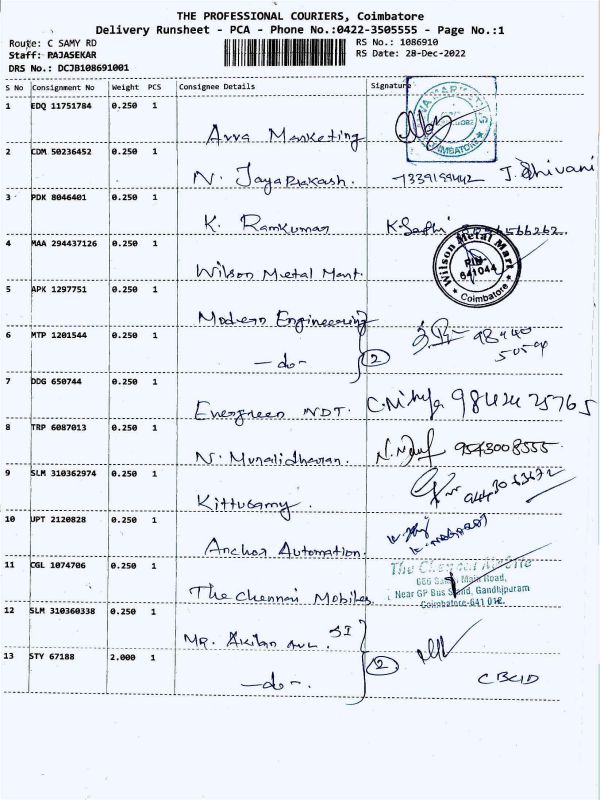 THE PROFESSIONAL COURIERS, Coimbatore
Delivery Runsheet - PCA - Phone No.:0422-3505555 - Page No.:1
Route: C SAMY RD
RS No.: 1086910
Staff: RAJASEKAR
RS Date: 28-Dec-2022
DRS No.: DCJB108691001
S No Consignment No Weight PCS Consignee Details Signature
1 EDQ 11751784 0.250 1
Arra Marketing
COIMBATORE
2 CDM 50236452 0.250 1
N. Jayaprakash. 7339199442 J. Shivani
3 PDK 8046401 0.250 1
K. Ramkumar
4 MAA 294437126 0.250 1
Wilson Metal Mart.
Wilson Metal Mart
PIN-
641044
Coimbatore
5 APK 1297751 0.250 1
Modern Engineering
6 MTP 1201544 0.250 1
-do- 2
98440
50504
7 DDG 650744 0.250 1
Evergreen NDT. C.Nithya 9842425765
8 TRP 6087013 0.250 1
N. Muralidharan. 9543008555
9 SLM 310362974 0.250 1
Kittusamy.
10 UPT 2120828 0.250 1
Anchor Automation.
11 CGL 1074706 0.250 1
The Chennai Mobiles
The Chennai
Main Road,
Near GP Bus Stand, Gandhipuram
Coimbatore-641 012.
12 SLM 310360338 0.250 1
Mr. Akilan SI
13 STY 67188 2.000 1
-do-. 2
CBCID